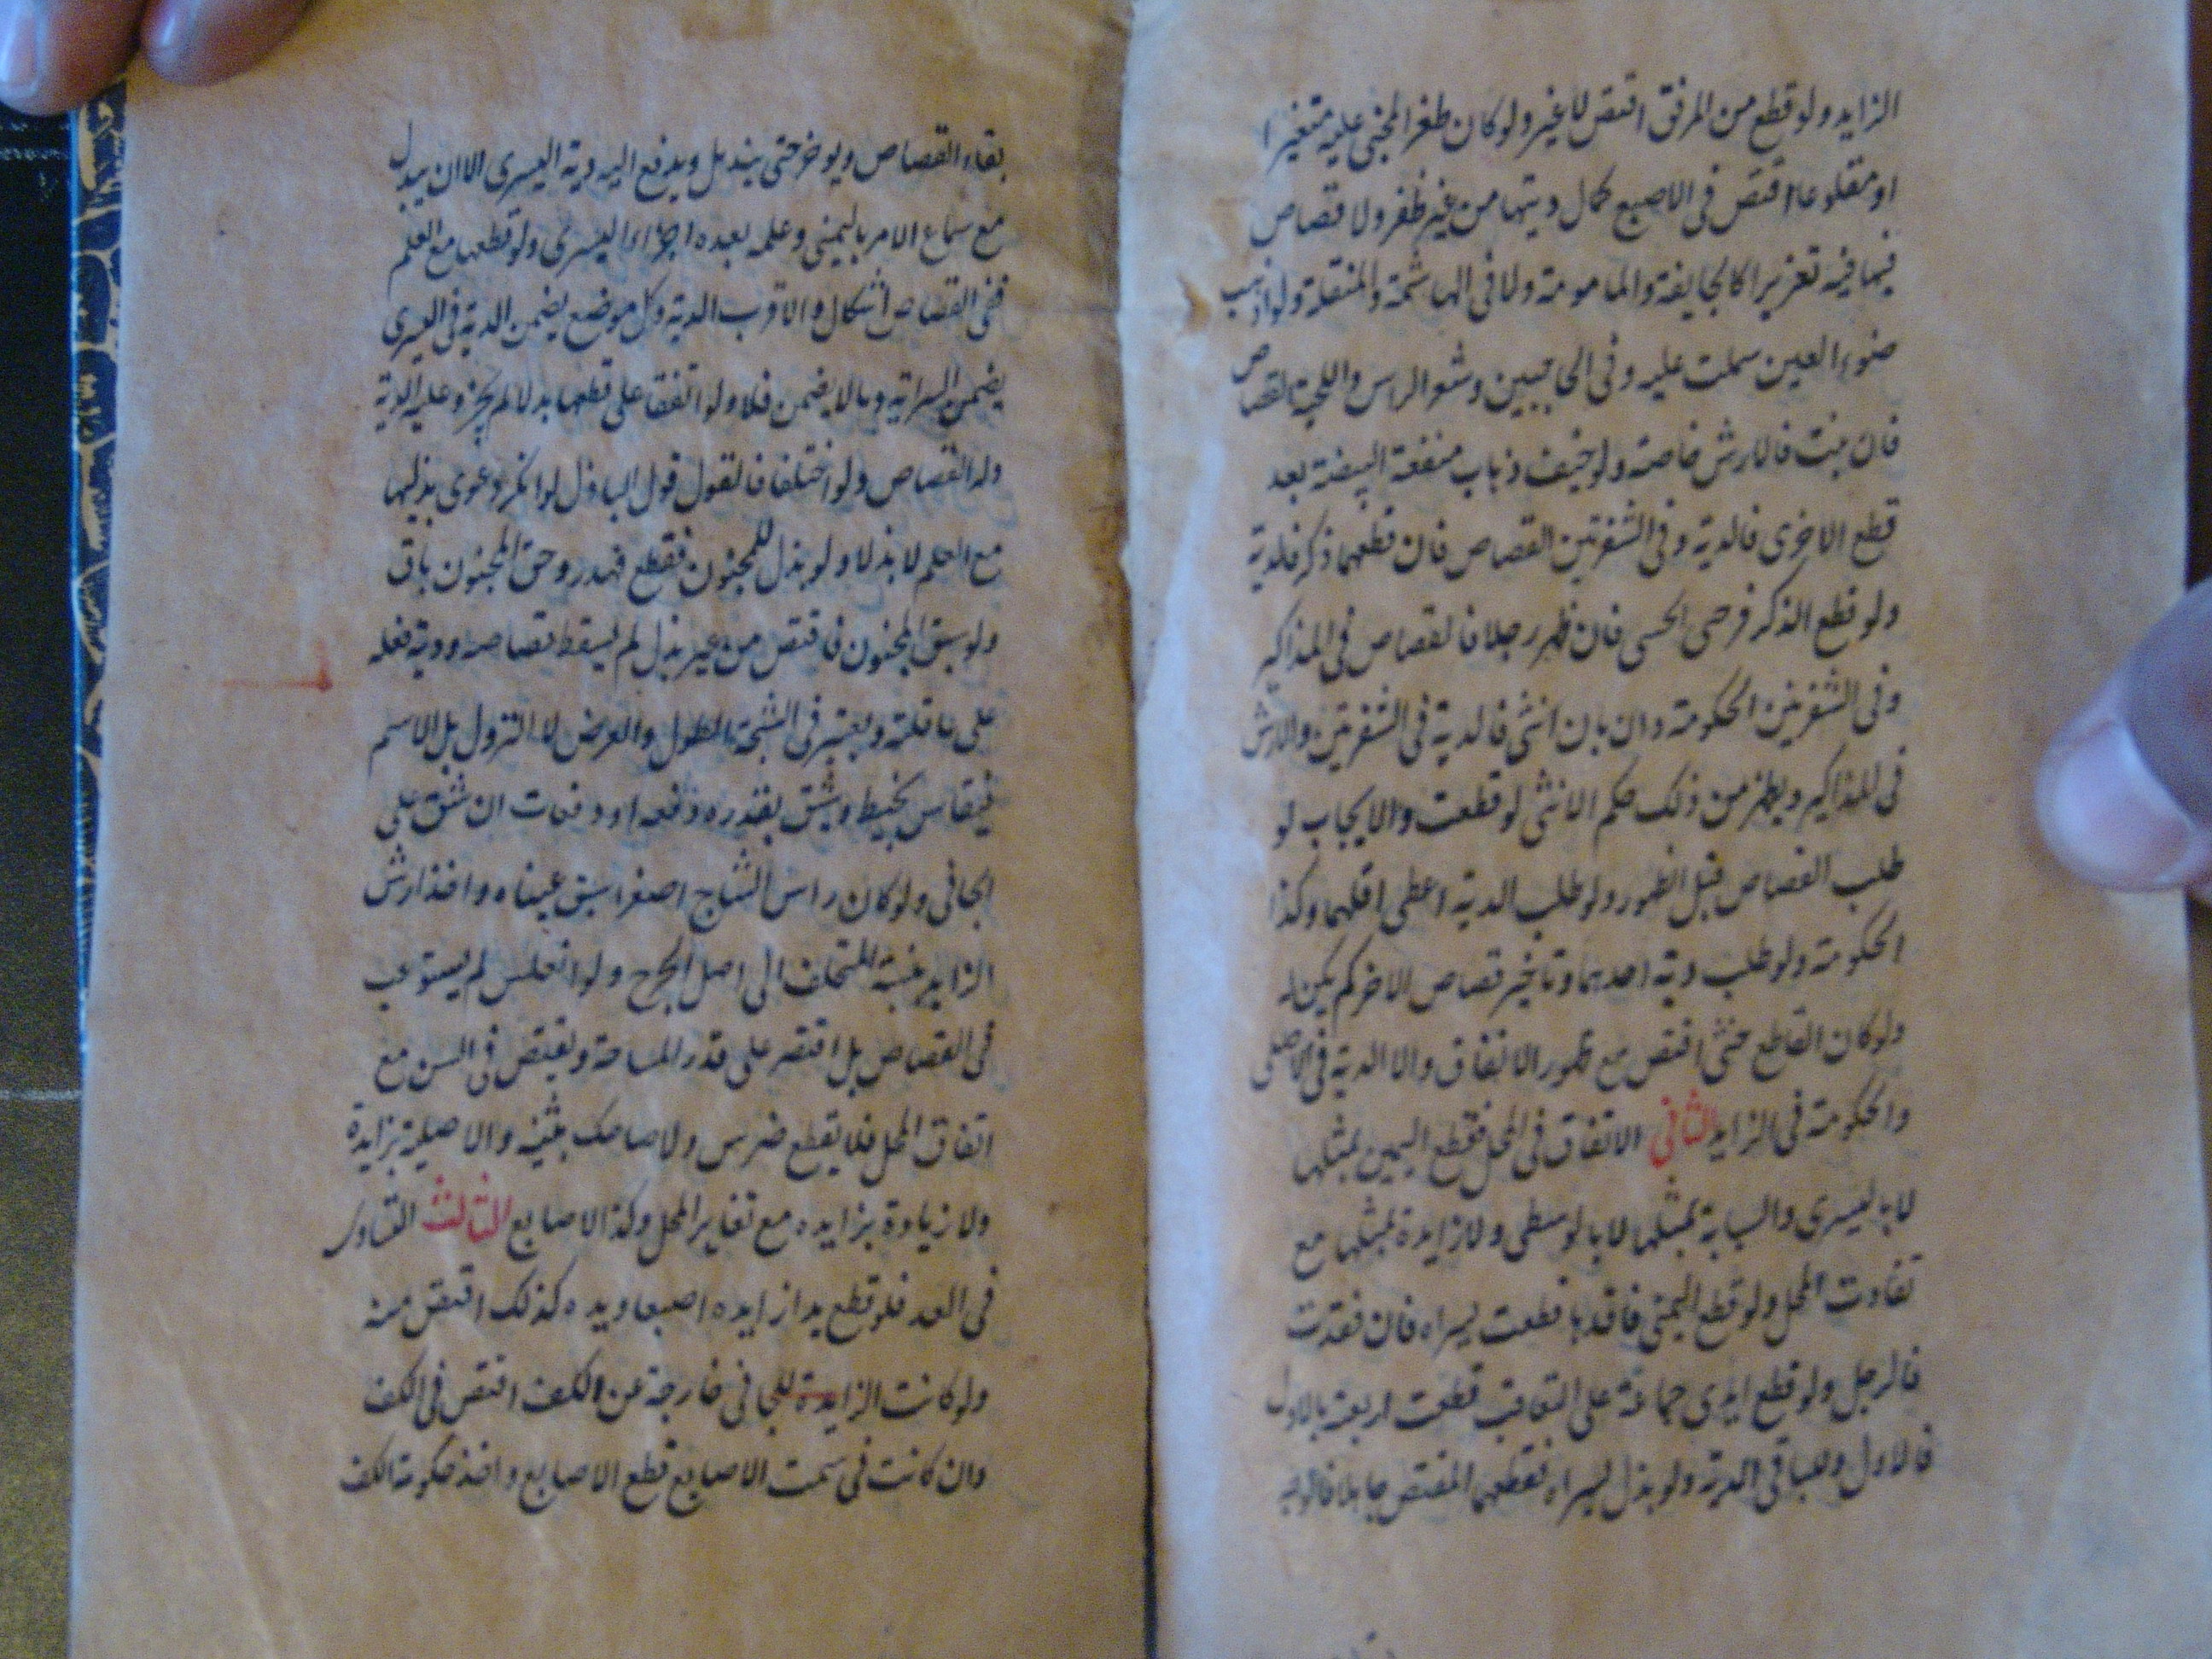 الزايد ولو قطع من المرفق اقتص لا غير ولو كان ظفر المجنى عليه متغيرا
او مقلوعا اقتص فى الاصبع كمال ديتها من غير ظفر ولا قصاص
فيما فيه تعزيرا كالجايفة والمامومة ولا فى الهاشمة والمنقلة ولو اذهب
ضوء العين سملت عليه وفى الحاجبين وشعر الراس واللحية القصاص
فان نبت فالارش خاصة ولو خيف ذهاب منفعة البيضة بعد
قطع الاخرى فالدية وفى الشفرتين القصاص فان قطعهما ذكر فلدية
ولو قطع الذكر فرجى الخنثى فان ظهر رجلا فالقصاص فى المذاكير
وفى الشفرتين الحكومة وان بان انثى فالدية فى الشفرتين والارش
فى المذاكير ويظهر من ذلك حكم الانثى لو قطعت والايجاب لو
طلب القصاص قبل الظهور ولو طلب الدية اعطى اقلهما وكذا
الحكومة ولو طلب دية احدهما وتاخير قصاص الاخر لم يكن له
ولو كان القاطع خنثى اقتص مع ظهور الاتفاق والا الدية فى الاصلى
والحكومة فى الزايد الثانى الاتفاق فى المحل فقطع اليمين بمثلها
لا باليسرى والسبابة بمثلها لا بالوسطى ولا زايدة بمثلها مع
تفاوت المحل ولو قطع اليمنى فاقدها قطعت يسراه فان فقدت
فالرجل ولو قطع ايدى جماعة على التعاقب قطعت اربعة بالاول
فالاول وللباقى الدية ولو بذل يسراه فقطعها المقتص جاهلا فالوجه
بقاء القصاص ويوخر حتى يندمل ويدفع اليه دية اليسرى الا ان يبذل
مع سماع الامر باليمنى وعلمه بعده اجزاء اليسرى ولو قطعها مع العلم
ففى القصاص اشكال والاقرب الدية وكل موضع يضمن الدية فى اليسرى
يضمن السراية وما لا يضمن فلا ولو اتفقا على قطعها بدلا لم يجز وعليه الدية
وله القصاص ولو اختلفا فالقول قول الباذل لو انكر دعوى بذلها
مع العلم لا بدلا ولو بذل للمجنون فقطع فهدر وحق المجنون باق
ولو سبق المجنون فاقتص من غير بذل لم يسقط قصاصه ودية فعله
على عاقلته ويعتبر فى الشجة الطول والعرض لا النزول بل الاسم
فيقاس بخيط ويشق بقدره دفعة او دفعات ان شق على
الجانى ولو كان راس الشاج اصغر استوعبناه واخذ ارش
الزايد بنسبة المتخلف الى اصل الجرح ولو انعكس لم يستوعب
فى القصاص بل اقتصر على قدر المساحة ويقتص فى السن مع
اتفاق المحل فلا يقطع ضرس ولا ضاحك بثنية والاصلية بزايدة
ولا زيادة بزايده مع تغاير المحل وكذا الاصابع الثالث التساوى
فى العدد فلو قطع يدا زايده اصبعا ويده كذلك اقتص منه
ولو كانت الزايدة للجانى خارجة عن الكف اقتص فى الكف
وان كانت فى سمت الاصابع قطع الاصابع واخذ حكومة الكف